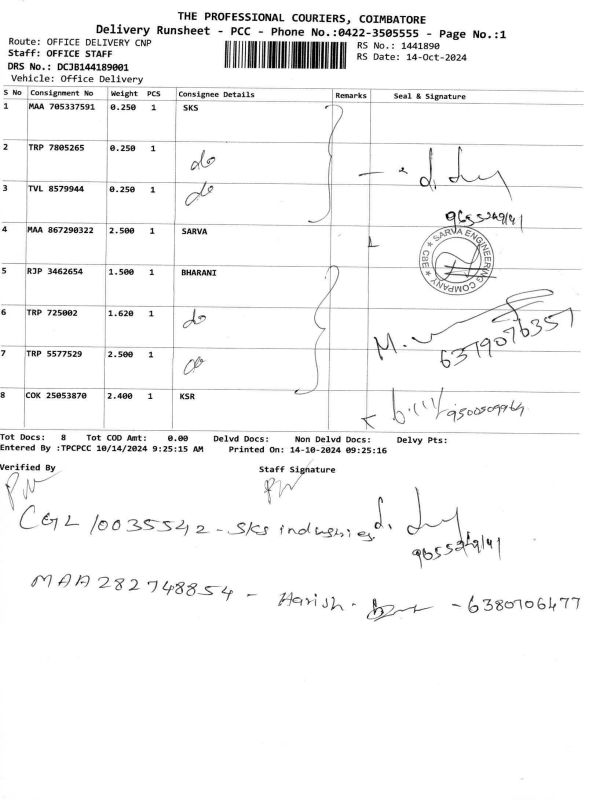 THE PROFESSIONAL COURIERS, COIMBATORE
Delivery Runsheet - PCC - Phone No.:0422-3505555 - Page No.:1
Route: OFFICE DELIVERY CNP
RS No.: 1441890
Staff: OFFICE STAFF
RS Date: 14-Oct-2024
DRS No.: DCJB144189001
Vehicle: Office Delivery
S No Consignment No Weight PCS Consignee Details Remarks Seal & Signature
1 MAA 705337591 0.250 1 SKS
2 TRP 7805265 0.250 1 do
3 TVL 8579944 0.250 1 do
4 MAA 867290322 2.500 1 SARVA
SARVA ENGINEERING COMPANY CBE
5 RJP 3462654 1.500 1 BHARANI
6 TRP 725002 1.620 1 do
6379076357
7 TRP 5577529 2.500 1 do
8 COK 25053870 2.400 1 KSR
Tot Docs: 8 Tot COD Amt: 0.00 Delvd Docs: Non Delvd Docs: Delvy Pts:
Entered By :TPCPCC 10/14/2024 9:25:15 AM Printed On: 14-10-2024 09:25:16
Verified By Staff Signature
CGL 10035542 - SKS industries
MAA 282748854 - Harish - 6380706477